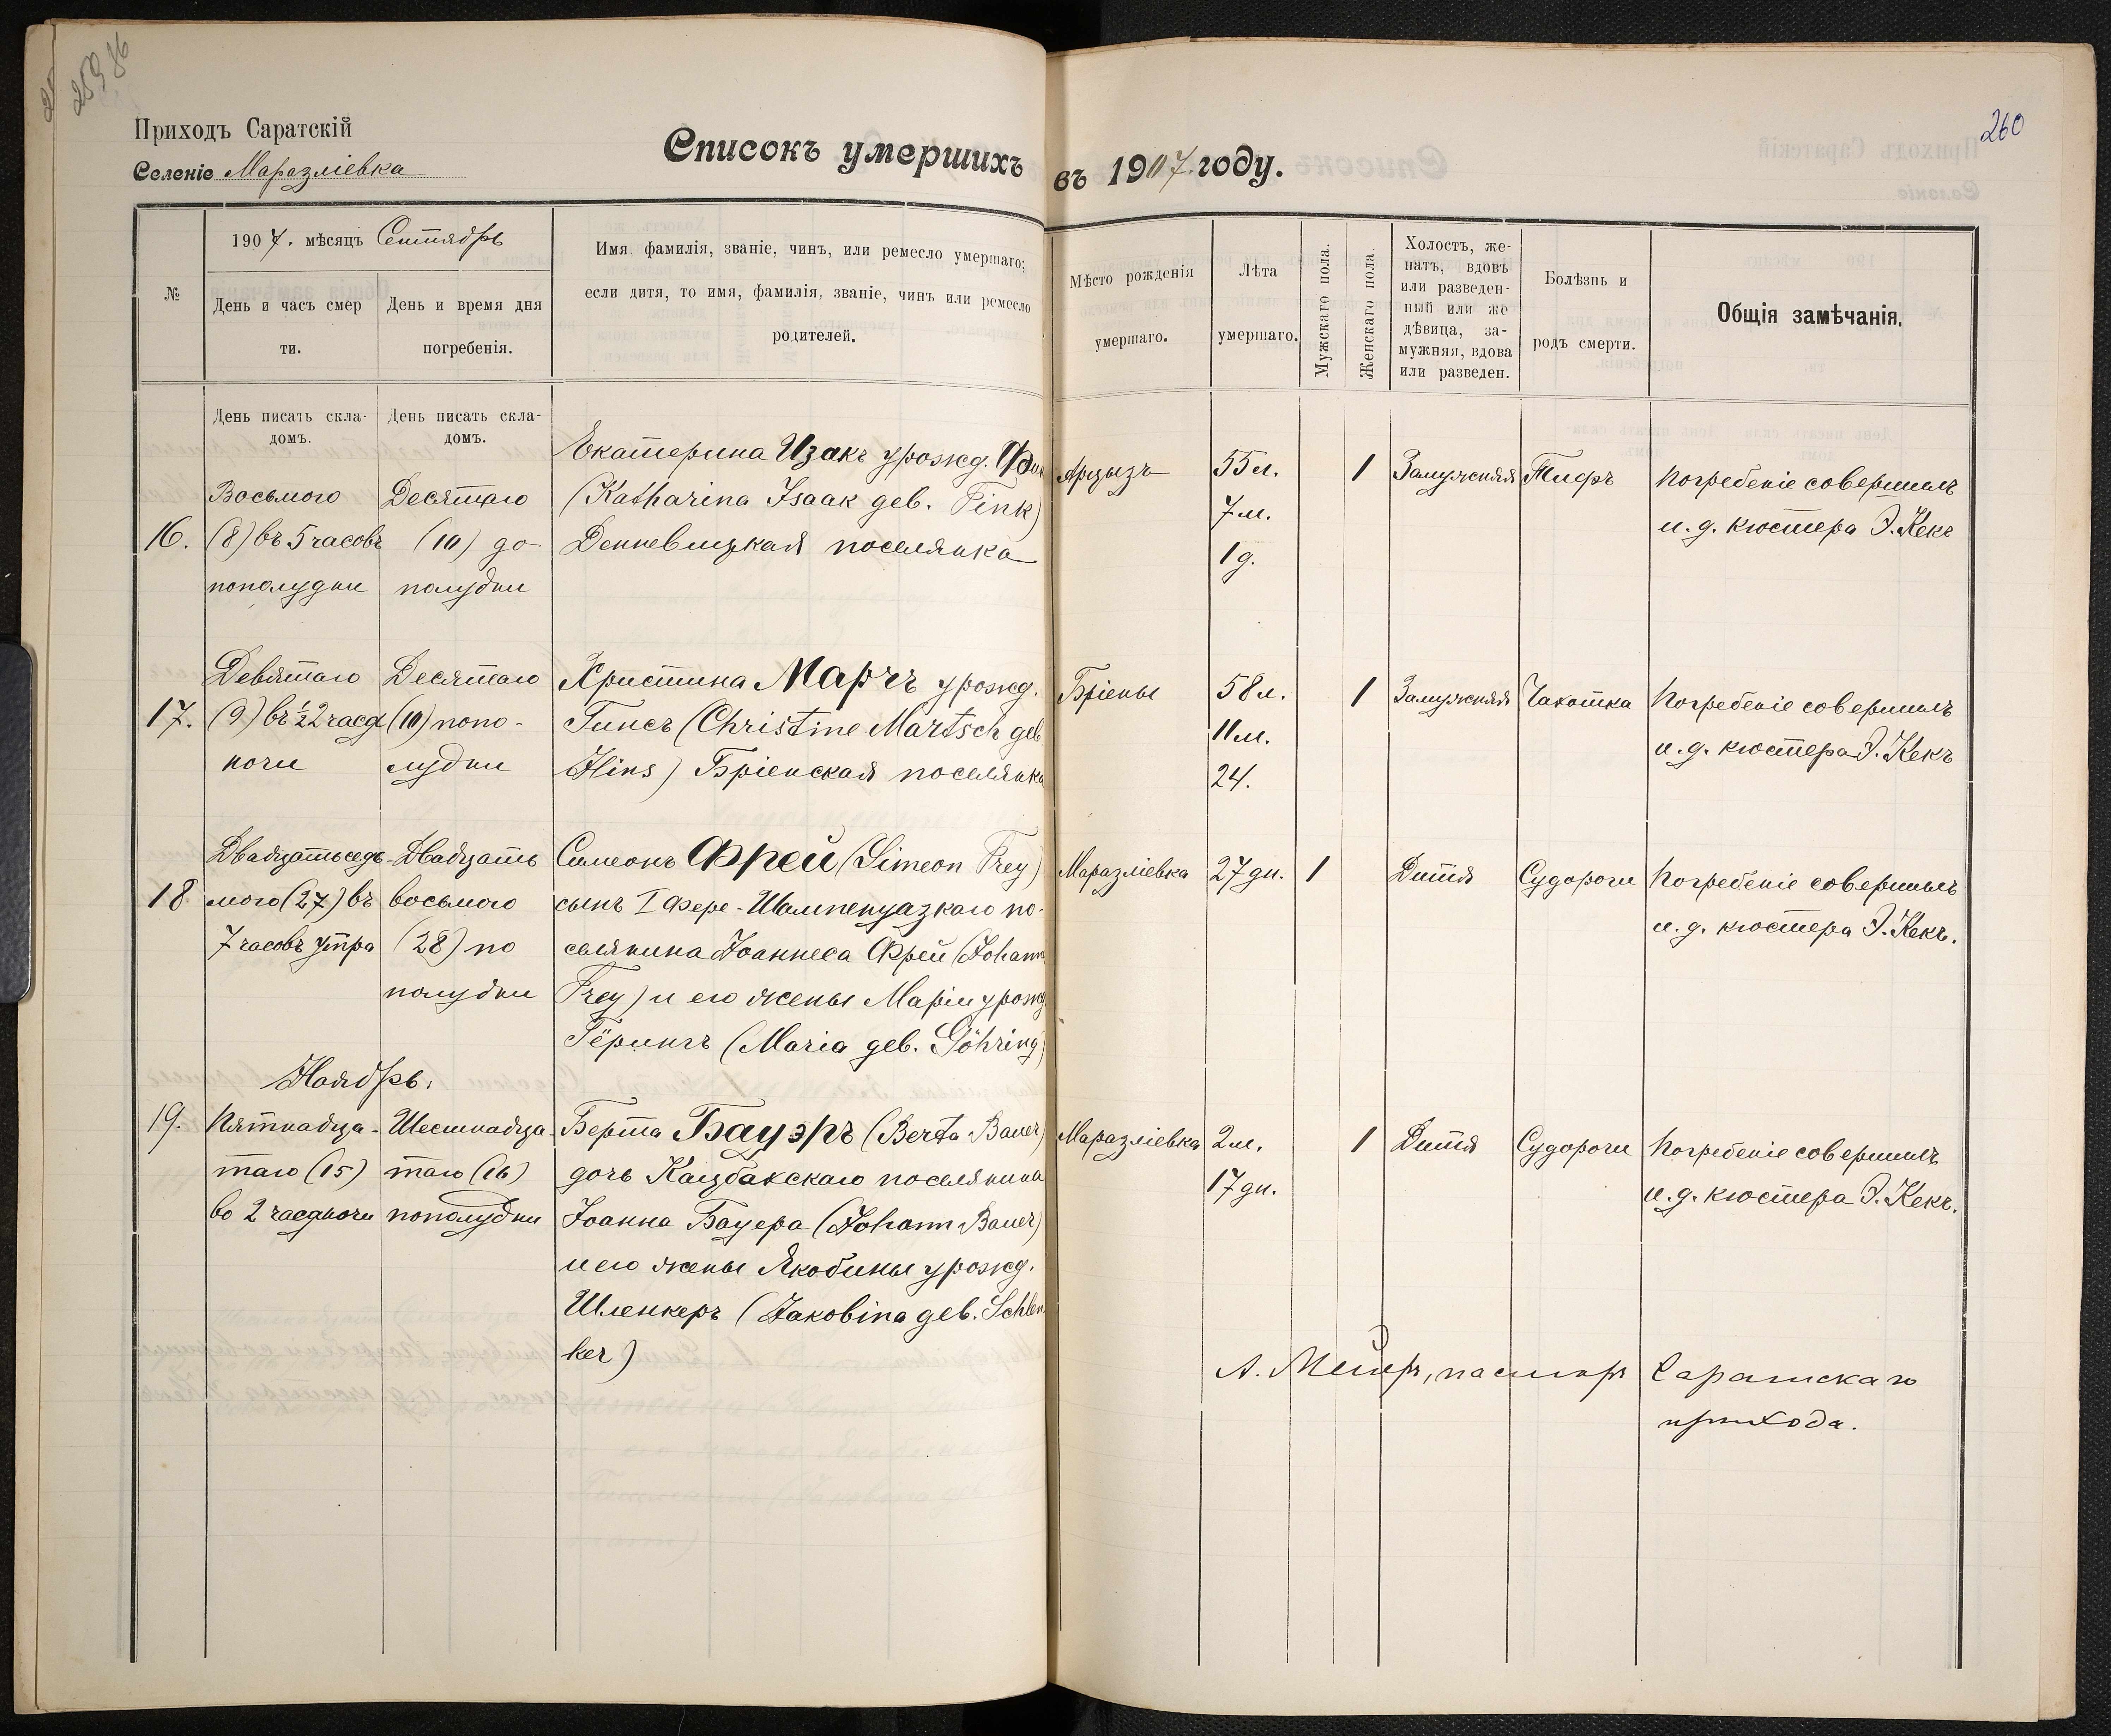 259 86
260
Приходъ Саратскій
Селеніе Маразліевка
Списокъ умершихъ въ 1907 году.
№
1907. мѣсяцъ Сентябрь
День и часъ смер
ти.
День и время дня
погребенія.
Имя, фамилія, званіе, чинъ, или ремесло умершаго;
если дитя, то имя, фамилія, званіе, чинъ или ремесло
родителей.
Мѣсто рожденія
умершаго.
Лѣта
умершаго.
Мужскаго пола.
Женскаго пола.
Холостъ, же-
натъ, вдовъ
или разведен-
ный или же
дѣвица, за-
мужняя, вдова
или разведен.
Болѣзнь и
родъ смерти.
Общія замѣчанія.
День писать скла-
домъ.
День писать скла-
домъ.
16.
Восьмого
(8) въ 5 часовъ
пополудни
Десятаго
(10) до
полудни
Екатерина Изакъ урожд. Финк
(Katharina Isaak geb. Fink)
Денневицкая поселянка
Арцызъ
55 л.
7 м.
1 д.
1
Замужняя
Тифъ
Погребеніе совершилъ
и. д. кюстера Э. Кекъ
17.
Девятаго
(9) въ ½2 часа
ночи
Десятаго
(10) попо-
лудни
Христина Марчъ урожд.
Гинсъ (Christine Martsch geb.
Hins) Бріенская поселянка
Бріены
58 л.
11 м.
24.
1
Замужняя
Чахотка
Погребеніе совершилъ
и. д. кюстера Э. Кекъ
18
Двадцатьседь-
мого (27) въ
7 часовъ утра
Двадцать
восьмого
(28) по
полудни
Симеонъ Фрей (Simeon Frey)
сынъ I Фере-Шампенуазкаго по-
селянина Іоаннеса Фрей (Johann
Frey) и его жены Маріи урожд
Гёрингъ (Maria geb. Göhring)
Маразліевка
27 дн.
1
Дитя
Судороги
Погребеніе совершилъ
и. д. кюстера Э. Кекъ.
Ноябрь.
19.
Пятнадца-
таго (15)
во 2 часа ночи
Шестнадца-
таго (16)
пополудни
Берта Бауэръ (Berta Bauer)
дочь Кацбахскаго поселянина
Іоанна Бауера (Johann Bauer)
и его жены Якобины урожд.
Шленкеръ (Jakobina geb. Schlen
ker)
Маразліевка
2 м.
17 дн.
1
Дитя
Судороги
Погребеніе совершилъ
и. д. кюстера Э. Кекъ.
А. Мейеръ, пасторъ Саратскаго
прихода.